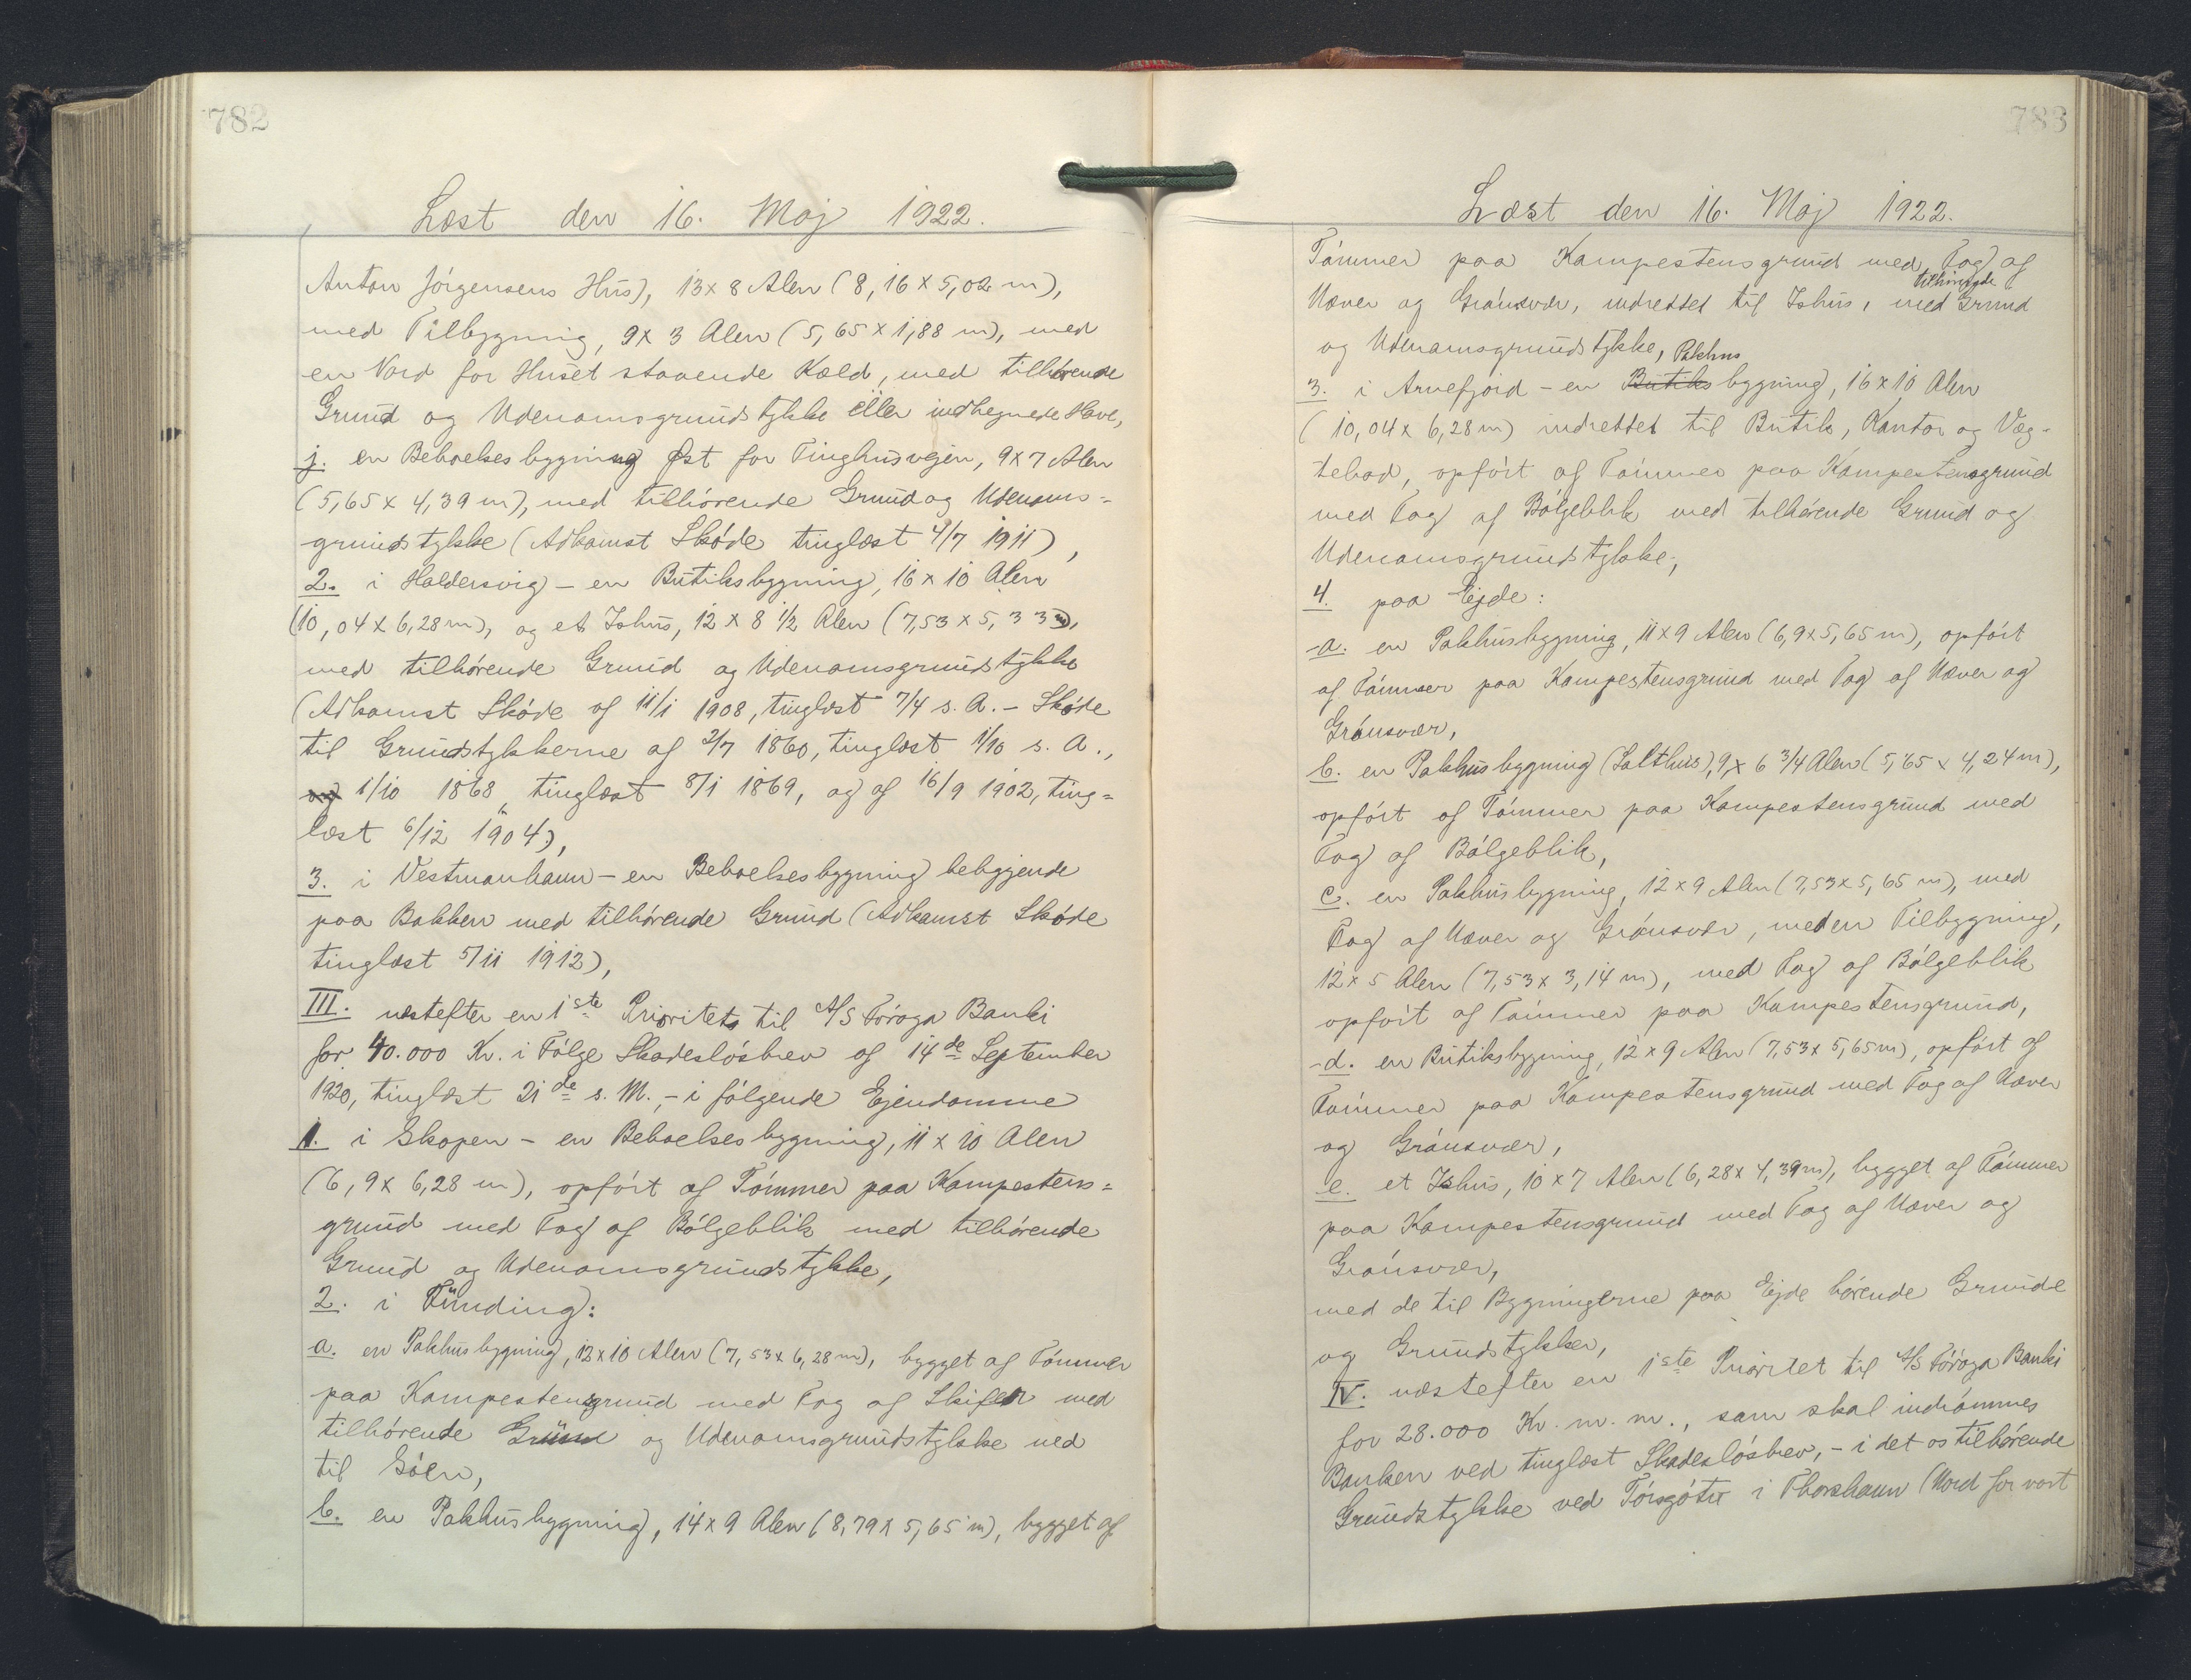 782
Læst den 16. Maj 1922.
Anton Jörgensens Hus), 13 x 8 Alen (8,16 x 5,02 m),
med Tilbygning, 9 x 3 Alen (5,65 x 1,88 m), med
en Nord for Huset staaende Kæld, med tilhørende
Grund og Udenomsgrundstykke eller indhegnede Have,
j. en Beboelsesbygning Øst for Tinghusvejen, 9 x 7 Alen
(5,65 x 4,39 m), med tilhórende Grund og Udenoms-
grundstykke (Adkomst Skóde tinglæst 4/7 1911),
2. i Haldersvig - en Butiksbygning, 16 x 10 Alen
(10,04 x 6,28 m), og et Ishus, 12 x 8 1/2 Alen (7,53 x 5,33 m),
med tilhórende Grund og Udenomsgrundstykke
(Adkomst Skóde af 11/1 1908, tinglæst 7/4 s. A. - Skóde
til Grundstykkerne af 2/7 1860, tinglæst 1/10 s. A.,
og 1/10 1868, tinglæst 8/1 1869, og af 16/9 1902, ting-
læst 6/12 1904),
3. i Vestmanhavn - en Beboelsesbygning beliggende
paa Bakken med tilhórende Grund (Adkomst Skóde
tinglæst 5/11 1912),
III. næstefter en 1ste Prioritets til A/S Fóroya Banki
for 40.000 Kr. i Fólge Skadeslósbrev af 14de September
1920, tinglæst 21de s. M., - i fólgende Ejendomme
1. i Skopen - en Beboelsesbygning, 11 x 10 Alen
(6,9 x 6,28 m), opfórt af Tómmer paa Kampestens-
grund med Tag af Bólgeblik med tilhórende
Grund og Udenomsgrundstykke,
2. i Funding:
a. en Pakhusbygning, 12 x 10 Alen (7,53 x 6,28 m), bygget af Tómmer
paa Kampestensgrund med Tag af Skifer med
tilhórende Grund og Udenomsgrundstykke ned
til Sóen,
b. en Pakhusbygning, 14 x 9 Alen (8,79 x 5,65 m), bygget af
783
Læst den 16. Maj 1922.
Tómmer paa Kampestensgrund med Tag af
tilhórende
Næver og Grónsvær, indrettet til Ishus, med Grund
og Udenomsgrundstykke,
Pakhus
3. i Arnefjord - en Butiksbygning, 16 x 10 Alen
(10,04 x 6,28 m) indrettet til Butik, Kontor og Væg-
tebod, opfórt af Tómmer paa Kampestensgrund
med Tag af Bólgeblik med tilhórende Grund og
Udenomsgrundstykke,
4. paa Ejde:
a. en Pakhusbygning, 11 x 9 Alen (6,9 x 5,65 m), opfórt
af Tómmer paa Kampestensgrund med Tag af Næver og
Grónsvær,
b. en Pakhusbygning (Salthus), 9 x 6 3/4 Alen (5,65 x 4,24 m),
opfórt af Tómmer paa Kampestensgrund med
Tag af Bólgeblik,
c. en Pakhusbygning, 12 x 9 Alen (7,53 x 5,65 m), med
Tag af Næver og Grónsvær, med en Tilbygning,
12 x 5 Alen (7,53 x 3,14 m), med Tag af Bólgeblik
opfórt af Tómmer paa Kampestensgrund,
d. en Butiksbygning, 12 x 9 Alen (7,53 x 5,65 m), opfórt af
Tómmer paa Kampestensgrund med Tag af Næver
og Grónsvær,
e. et Ishus, 10 x 7 Alen (6,28 x 4,39 m), bygget af Tómmer
paa Kampestensgrund med Tag af Næver og
Grónsvær,
med de til Bygningerne paa Ejde hórende Grunde
og Grundstykker,
IV. næstefter en 1ste Prioritet til A/S Fóroya Banki
for 28.000 Kr. m. m., som skal indrómmes
Banken ved tinglæst Skadeslósbrev, - i det os tilhórende
Grundstykke ved Tórsgótu i Thorshavn (Nord for vort